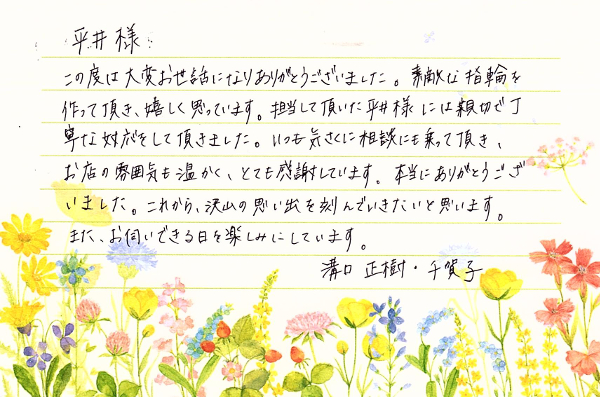 平井様
この度は大変お世話になりありがとうございました。素敵な指輪を
作って頂き、嬉しく思っています。担当して頂いた平井様には親切で丁
寧な対応をして頂きました。いつも気さくに相談にも乗って頂き、
お店の雰囲気も温かく、とても感謝しています。本当にありがとうござ
いました。これから、沢山の思い出を刻んでいきたいと思います。
また、お伺いできる日を楽しみにしています。
溝口 正樹・千賀子